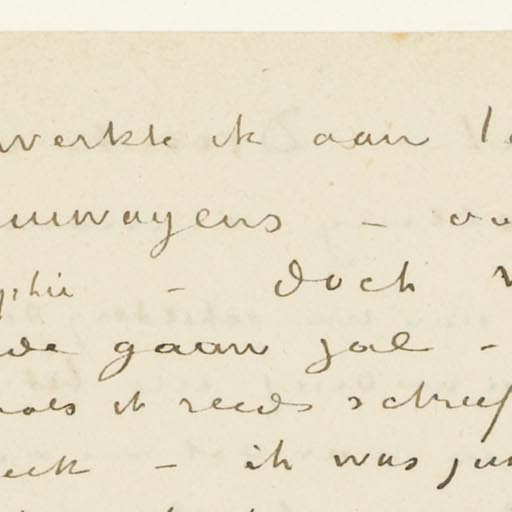 werkte ik aan
uwwagens –
phie – doch
de gaan zal –
oals ik reeds schreef
eek – ik was jui